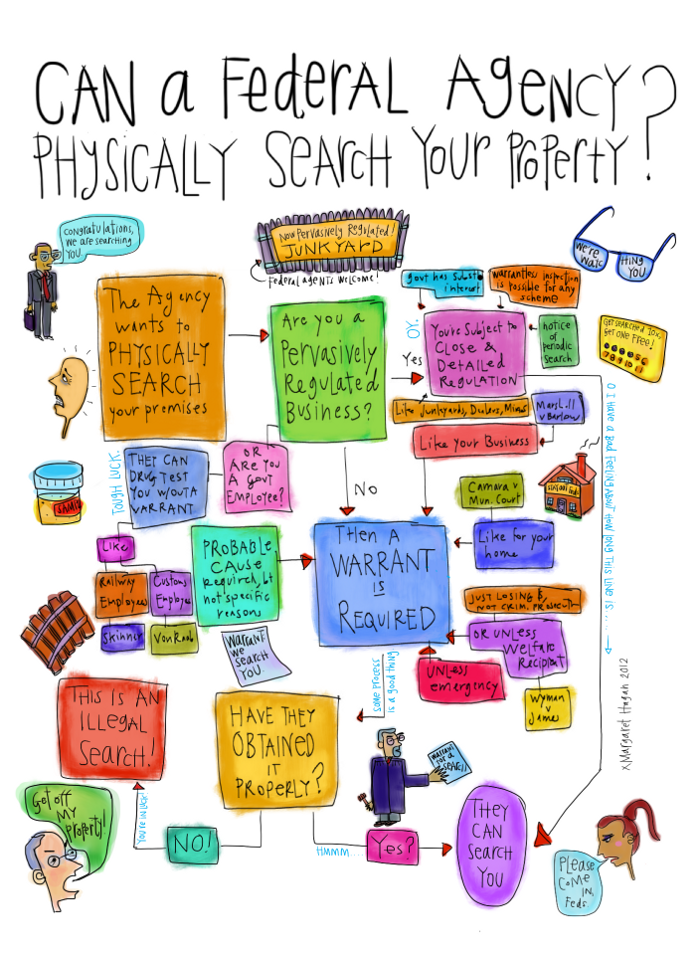 CAN a Federal Agency
Physically Search Your Property?
congratulations,
we are searching
you.
Now Pervasively Regulated!
JUNKYARD
Federal agents welcome!
We're
watc
hing
you
The Agency
wants to
PHYSICALLY
SEARCH
your premises
Are you a
Pervasively
Regulated
Business?
govt has subst'l
interest
warrantless inspection
is possible for any
scheme
OY.
Yes
You're Subject to
Close &
Detailed
Regulation
notice
of
periodic
search
Get searched 10x,
Get one free!
Like Junkyards, Dealers, Mines
Marshall
v Barlow
Like Your Business
O I have a bad feeling about how long this line is.....
TOUGH LUCK.
They can
Drug test
you w/out a
warrant
OR
Are you
a Govt
Employee?
NO
Like
Railway
Employees
Customs
Employee
Skinner
Von Raab
PROBABLE
CAUSE
required, but
not specific
reason
Then a
WARRANT
is
REQUIRED
Camara v
Mun. Court
Like for your
home
Just losing $,
not crim. prosecution
or unless
Welfare
Recipient
Wyman
v
James
UNLESS
emergency
Warrant
we
search
you.
some process
is a good thing
THIS IS AN
ILLEGAL
Search!
HAVE THEY
OBTAINED
it
PROPERLY?
warrant
for a
SEARCH
Get off
MY
property!
you're in luck!
NO!
HMMM....
Yes?
THEY
CAN
Search
YOU
Please
come
in,
Feds
x Margaret Hagan 2012